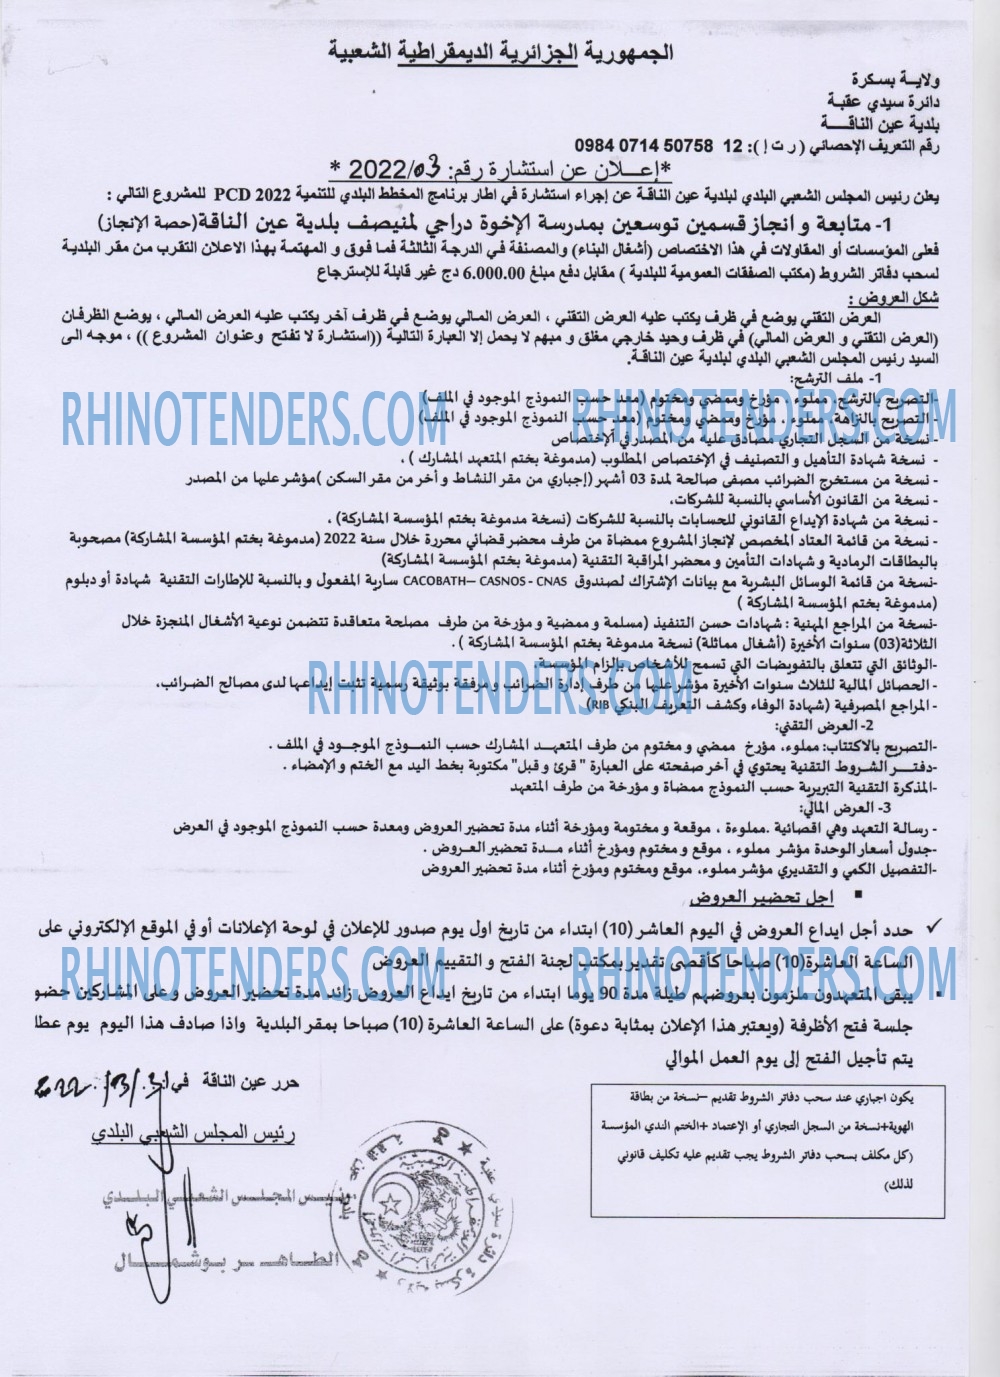 الجمهورية الجزائرية الديمقراطية الشعبية
ولايــة بسكرة
دائرة سيدي عقبة
بلدية عين الناقــــة
رقم التعريف الإحصائي ( ر ت إ ): 12 50758 0714 0984
*إعــلان عن استشارة رقم: 03/2022 *
يعلن رئيس المجلس الشعبي البلدي لبلدية عين الناقة عن إجراء استشارة في اطار برنامج المخطط البلدي للتنمية PCD 2022 للمشروع التالي :
1- متابعة و انجاز قسمين توسعين بمدرسة الإخوة دراجي لمنيصف بلدية عين الناقة(حصة الإنجاز)
فعلى المؤسسات أو المقاولات في هذا الاختصاص (أشغال البناء) والمصنفة في الدرجة الثالثة فما فوق و المهتمة بهذا الاعلان التقرب من مقر البلدية
لسحب دفاتر الشروط (مكتب الصفقات العمومية للبلدية ) مقابل دفع مبلغ 6.000.00 دج غير قابلة للإسترجاع
شكل العروض :
العرض التقني يوضع في ظرف يكتب عليه العرض التقني ، العرض المالي يوضع في ظرف آخر يكتب عليه العرض المالي ، يوضع الظرفان
(العرض التقني و العرض المالي) في ظرف وحيد خارجي مغلق و مبهم لا يحمل إلا العبارة التالية ((استشارة لا تفتح وعنوان المشروع )) ، موجه الى
السيد رئيس المجلس الشعبي البلدي لبلدية عين الناقة.
1- ملف الترشح:
-التصريح بالترشح: مملوء ، مؤرخ وممضي و مختوم (معد حسب النموذج الموجود في الملف)
- التصريح بالنزاهة: مملوء ، مؤرخ وممضي ومختوم (معد حسب النموذج الموجود في الملف)
RHINOTENDERS.COM RHINOTENDERS.COM
- نسخة من السجل التجاري مصادق عليه من المصدر في الإختصاص
- نسخة شهادة التأهيل و التصنيف في الإختصاص المطلوب (مدموغة بختم المتعهد المشارك ) ،
- نسخة من مستخرج الضرائب مصفى صالحة لمدة 03 أشهر (إجباري من مقر النشاط و أخر من مقر السكن )مؤشر عليها من المصدر
- نسخة من القانون الأساسي بالنسبة للشركات،
- نسخة من شهادة الإيداع القانوني للحسابات بالنسبة للشركات (نسخة مدموغة بختم المؤسسة المشاركة) ،
- نسخة من قائمة العتاد المخصص لإنجاز المشروع ممضاة من طرف محضر قضائي محررة خلال سنة 2022 (مدموغة بختم المؤسسة المشاركة) مصحوبة
بالبطاقات الرمادية و شهادات التأمين و محضر المراقبة التقنية (مدموغة بختم المؤسسة المشاركة)
-نسخة من قائمة الوسائل البشرية مع بيانات الإشتراك لصندوق CACOBATH– CASNOS - CNAS سارية المفعول و بالنسبة للإطارات التقنية شهادة أو دبلوم
(مدموغة بختم المؤسسة المشاركة )
-نسخة من المراجع المهنية : شهادات حسن التنفيذ (مسلمة و ممضية و مؤرخة من طرف مصلحة متعاقدة تتضمن نوعية الأشغال المنجزة خلال
الثلاثة(03) سنوات الأخيرة (أشغال مماثلة) نسخة مدموغة بختم المؤسسة المشاركة ) .
-الوثائق التي تتعلق بالتفويضات التي تسمح للأشخاص بإلزام المؤسسة.
- الحصائل المالية للثلاث سنوات الأخيرة مؤشر عليها من طرف إدارة الضرائب و مرفقة بوثيقة رسمية تثبت إيداعها لدى مصالح الضرائب.
RHINOTENDERS.COM
- المراجع المصرفية (شهادة الوفاء وكشف التعريف البنكي RIB)
2- العرض التقني:
-التصريح بالاكتتاب: مملوء، مؤرخ ممضي و مختوم من طرف المتعهد المشارك حسب النموذج الموجود في الملف .
-دفتــر الشروط التقنية يحتوي في آخر صفحته على العبارة " قرئ و قبل" مكتوبة بخط اليد مع الختم و الإمضاء .
-المذكرة التقنية التبريرية حسب النموذج ممضاة و مؤرخة من طرف المتعهد
3- العرض المالي:
- رسالة التعهد وهي اقصائية .مملوءة ، موقعة و مختومة ومؤرخة أثناء مدة تحضير العروض ومعدة حسب النموذج الموجود في العرض
-جدول أسعار الوحدة مؤشر مملوء ، موقع و مختوم ومؤرخ أثناء مــدة تحضير العروض .
-التفصيل الكمي و التقديري مؤشر مملوء، موقع ومختوم ومؤرخ أثناء مدة تحضير العروض
▪ اجل تحضير العروض
✓ حدد أجل ايداع العروض في اليوم العاشر (10) ابتداء من تاريخ اول يوم صدور للإعلان في لوحة الإعلانات أو في الموقع الإلكتروني على
الساعة العاشرة(10) صباحا كأقصى تقدير بمكتب لجنة الفتح و التقييم العروض
RHINOTENDERS.COM RHINOTENDERS.COM
▪ يبقى المتعهدون ملزمون بعروضهم طيلة مدة 90 يوما ابتداء من تاريخ ايداع العروض زائد مدة تحضير العروض و على المشاركين حضو
جلسة فتح الأظرفة (ويعتبر هذا الإعلان بمثابة دعوة) على الساعة العاشرة (10) صباحا بمقر البلدية واذا صادف هذا اليوم يوم عطل
يتم تأجيل الفتح إلى يوم العمل الموالي
حرر عين الناقة في:
رئيس المجلس الشعبي البلدي
يكون اجباري عند سحب دفاتر الشروط تقديم –نسخة من بطاقة
الهوية+نسخة من السجل التجاري أو الإعتماد +الختم الندي المؤسسة
(كل مكلف بسحب دفاتر الشروط يجب تقديم عليه تكليف قانوني
لذلك)
رئيس المجلس الشعبي البلدي
الطاهر بوشمال